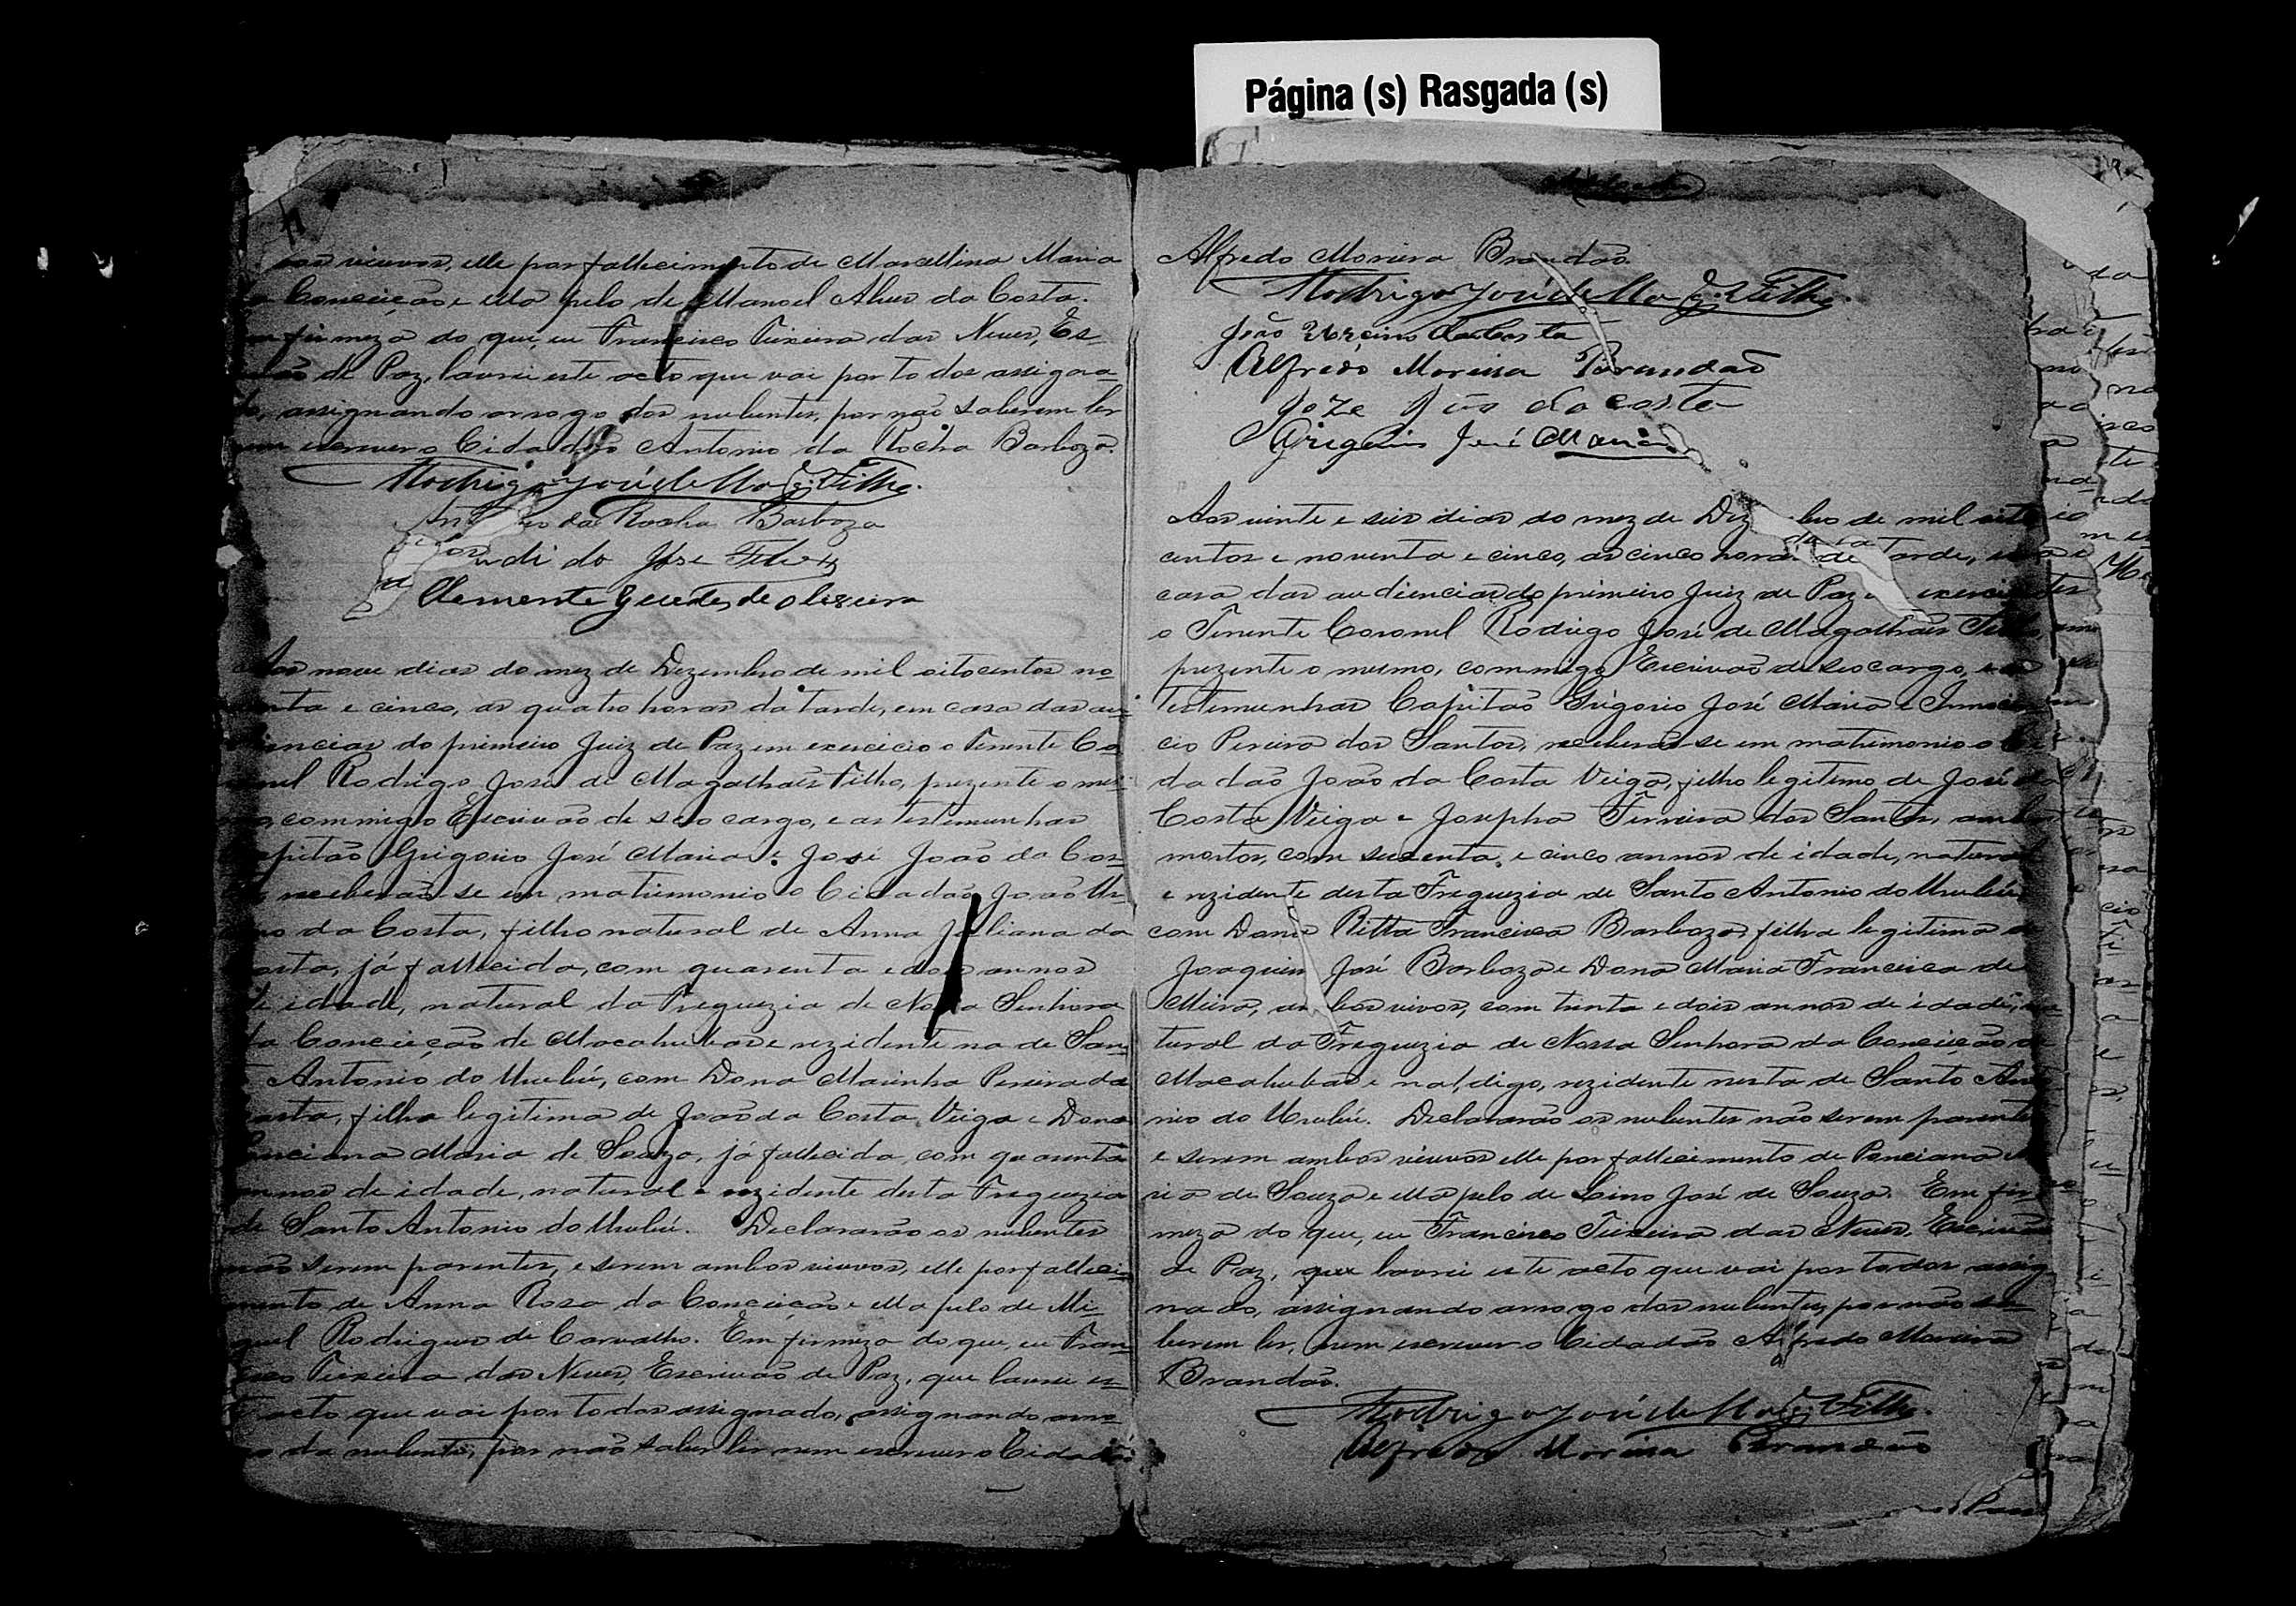 Página (s) Rasgada (s)
viuvos, elle por fallecimento de Marcellina Maria
da Conceição e ella pelo de Manoel Alves da Costa.
firmeza do que, eu Francisco Teixeira das Neves, Es-
de Paz, lavrei este acto que vai por todos assigna-
do, assignando a rogo dos nubentes, por não saberem ler
nem escrever o Cidadão Antonio da Rocha Barboza.
Rodrigo José de Mag. Filho.
da Rocha Barboza
di do Jose
Clemente Guedes de oliseira
Aos nove dias do mez de Dezembro de mil oitocentos no-
venta e cinco, as quatro horas da tarde, em casa das au-
diencias do primeiro Juiz de Paz em exercicio o Tenente Co-
ronel Rodrigo José de Magalhães Filho, prezente o mes-
mo, commigo Escrivão de seo cargo, e as testemunhas
Capitão Grigorio José Maria e José João da Cos-
ta receberão-se em matrimonio o Cidadão João Ur-
da Costa, filho natural de Anna Juliana da
Costa, já fallecida, com quarenta e dois annos
de idade, natural da Freguezia de Nossa Senhora
da Conceição de Macahubas e rezidente na de San-
Antonio do Urubú, com Dona Marinha Pereira da
Costa, filha legitima de João da Costa Veiga e Dona
Ponciana Maria de Souza, já fallecida, com quarenta
annos de idade, natural e rezidente desta Freguezia
de Santo Antonio do Urubú. Declararão os nubentes
não serem parentes, e serem ambos viuvos, elle por falleci-
mento de Anna Rosa da Conceição e ella pelo de Mi-
guel Rodrigues de Carvalho. Em firmeza do que, eu Fran-
cisco Teixeira das Neves, Escrivão de Paz, que lavrei es-
te acto que vai por todos assignado, assignando a ro-
go da nubente, por não saber ler nem escrever o Cidadão
Alfredo Moreira Brandão.
Rodrigo José de Mag. Filho.
João Urcino da Costa
Alfredo Moreira Brandão
Joze Juão da Costa
Grigorio José Maria
Aos vinte e seis dias do mez de Dezembro de mil oito
centos e noventa e cinco, as cinco horas da tarde, em a
casa das audiencias do primeiro Juiz de Paz em exercicio
o Tenente Coronel Rodrigo José de Magalhães Filho,
prezente o mesmo, commigo Escrivão de seo cargo, e as
testemunhas Capitão Grigorio José Maria e Innocen-
cio Pereira dos Santos, receberão-se em matrimonio o Ci-
dadão João da Costa Veiga, filho legitimo de José da
Costa Veiga e Josepha Ferreira dos Santos, ambos
mortos, com secenta e cinco annos de idade, natural
e rezidente desta Freguezia de Santo Antonio do Urubú,
com Dona Ritta Francisca Barboza, filha legitima de
Joaquim José Barboza e Dona Maria Francisca de
Meira, ambos vivos, com trinta e dois annos de idade, na-
tural da Freguezia de Nossa Senhora da Conceição de
Macahubas e na, digo, rezidente nesta de Santo Anto-
nio do Urubú. Declararão os nubentes não serem parentes
e serem ambos viuvos elle por fallecimento de Ponciana Ma-
ria de Souza e ella pelo de Lino José de Souza. Em fir-
meza do que, eu Francisco Teixeira das Neves, Escrivão
de Paz, que lavrei este acto que vai por todos assig-
nado, assignando a rogo dos nubentes, por não sa-
berem ler, nem escrever o Cidadão Alfredo Moreira
Brandão.
Rodrigo José de Mag. Filho.
Alfredo Moreira Brandão